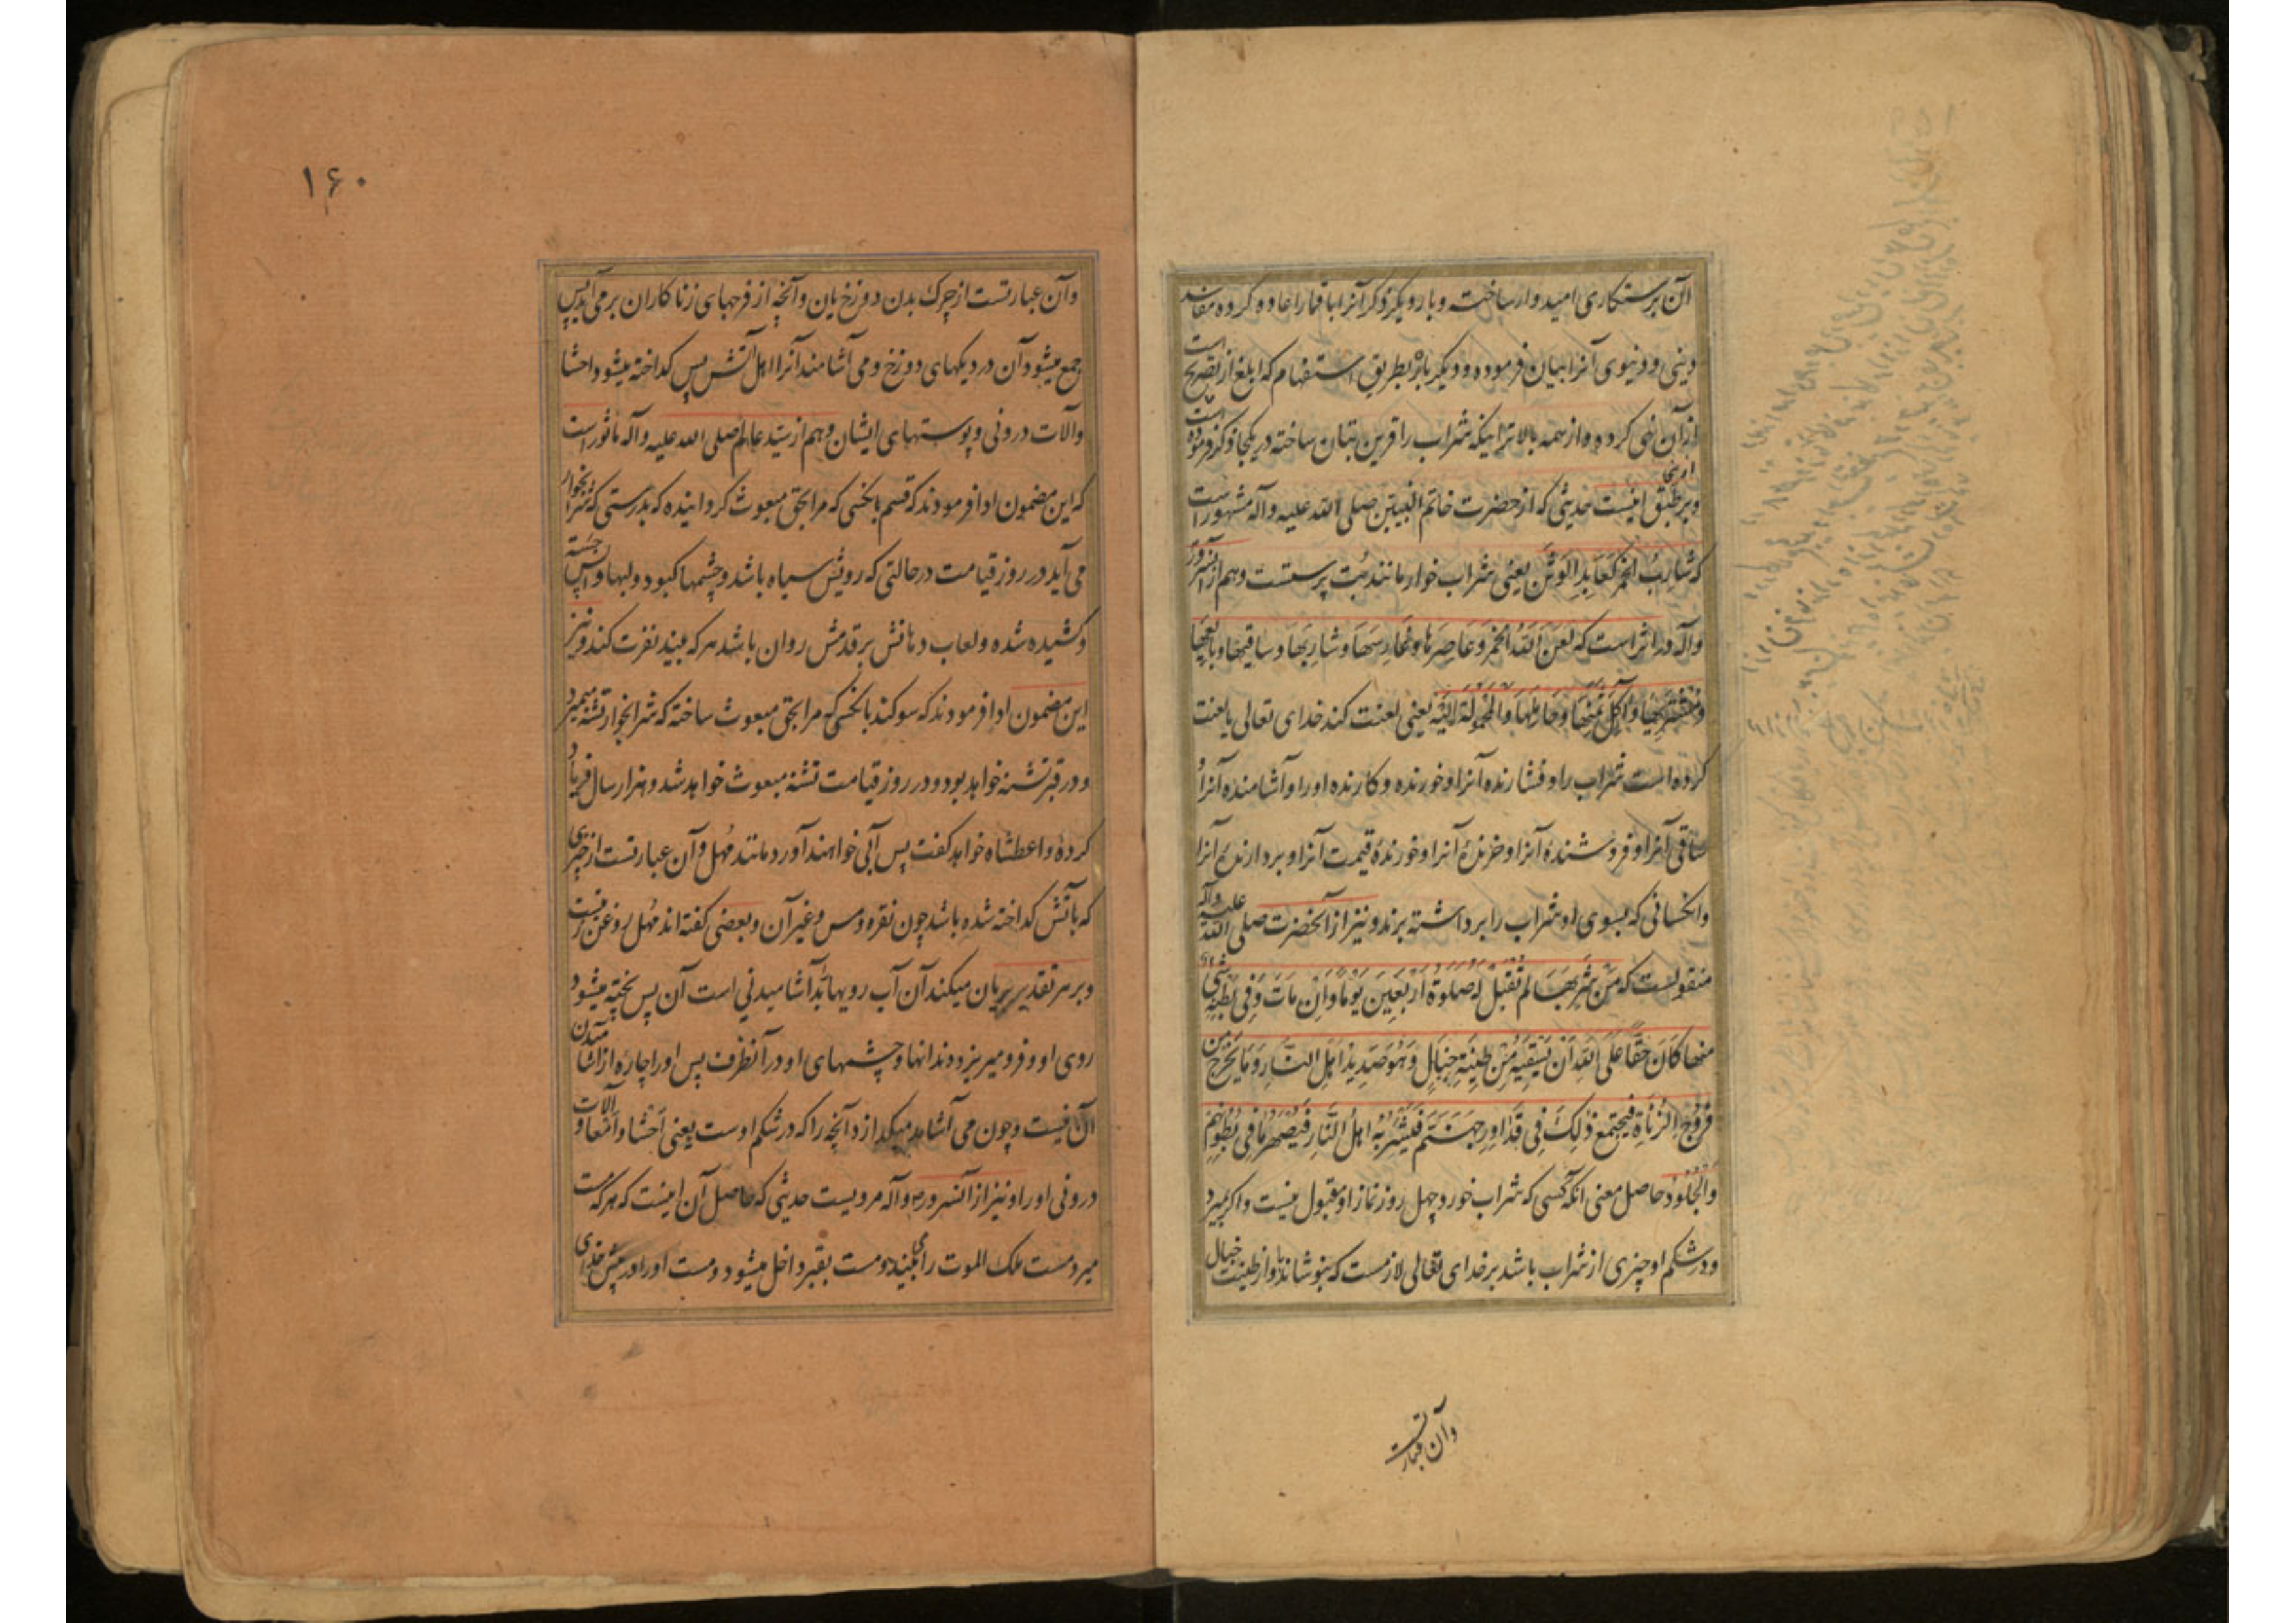 آن برستکاری امیدوار ساخته و بار دیگر ذکر آنرا با قمار اعاده کرده مفاسد
دینی و دنیوی آنرا بیان فرموده و دیگر باز بطریق استفهام که ابلغ از تصریح است
از آن نهی کرده و از همه بالاتر اینکه شراب را قرین بتان ساخته در یکجا ذکر فرموده است
و بر طبق اینست حدیثی که از حضرت خاتم النبیین صلی الله علیه و آله مشهور است
که شَارِبُ الخمرِ کَعَابِدِ الوَثَنِ یعنی شراب خوار مانند بُت پرستست و هم از آنسرور
و آله در اثر است که لَعَنَ اللّهُ الخمرَ وَعَاصِرَها وغَارِسَهَا وشَارِبَهَا وساقیَها وبایعَهَا
ومُشتَرِیَها وآکِلَ ثَمَنِهَا وحَامِلَهَا والمَحمُولَةَ اِلَیهِ یعنی لعنت کند خدای تعالی یا لعنت
کرده است شراب را و فشارنده آنرا و خورنده و کارنده اورا و آشامنده آنرا و
ساقی آنرا و فروشندهٔ آنرا و خرندهٔ آنرا و خورندهٔ قیمت آنرا و بردارندهٔ آنرا
و آنکسانی که بسوی او شراب را برداشته برند و نیز از آنحضرت صلی الله علیه وآله
منقولست که مَن شَرِبَهَا لم تُقبَل لَهُ صلوةُ اَربَعِینَ یَوماً واِن مَاتَ وَفِی بَطنِهِ شئ
منها کَانَ حَقّاً عَلَی اللّهِ اَن یَسقِیَهُ مِن طِینَةِ خَبَالٍ وَهُوَ صَدِیدُ اَهلِ النّارِ وَمَا یَخرُج مِن
فُرُوجِ الزُّنَاةِ فَیَجتَمِع ذلِکَ فِی قُدُورِ جَهَنَّمَ فَیَشرَبُهُ اهلُ النَّارِ فَیُصهَرُ مَا فِی بُطُونِهِم
والجُلُودُ حاصل معنی آنکه کسی که شراب خورد چهل روز نماز او مقبول نیست و اگر بمیرد
و در شکم او چیزی از شراب باشد بر خدای تعالی لازمست که بنوشاند او را از طینت خبال
وآن عبارتست
۱۶۰
و آن عبارتست از چرک بدن دوزخیان و آنچه از فرجهای زناکاران برمی آید پس
جمع میشود آن در دیکهای دوزخ و می آشامند آنرا اهل آتش پس کداخته میشود احشا
و آلات درونی و پوستهای ایشان و هم از سیّد عالم صلی الله علیه و آله ماثور است
که این مضمون ادا فرمودند که قسم بانکسی که مرا بحق مبعوث کردانیده که بدرستی که شرابخوار
می آید در روز قیامت در حالتی که رویش سیاه باشد و چشمها کبود و لبها
وکشیده شده و لعاب دهانش بر قدمش روان باشد هر که بیند نفرت کند و نیز
این مضمون ادا فرمودند که سوکند بانکسی که مرا بحق مبعوث ساخته که شرابخوار تشنه میمیرد
و در قبر تشنه خواهد بود و در روز قیامت تشنه مبعوث خواهد شد و هزار سال فریاد
کرده واعطشاه خواهد کفت پس آبی خواهند آورد مانند مُهل و آن عبارتست از چیزی
که باتش کداخته شده باشد چون نقره و مس و غیر آن و بعضی کفته اند مُهل روغن زیتست
و بر هر تقدیر بریان میکند آن آب رویها بد آشامیدنی است آن پس پخته میشود
روی او و فرو میریزد دندانها و چشمهای او در آنظرف پس او را چاره از آشامیدن
آن نیست و چون می آشامد میکدازد آنچه را که در شکم اوست یعنی اَحشا و اَمعا و آلات
درونی او را و نیز از آنسرور و آله مرویست حدیثی که حاصل آن اینست که هرکه مست
میرد مست ملک الموت را می بیند و مست بقبر داخل میشود و مست او را در پیش خدای